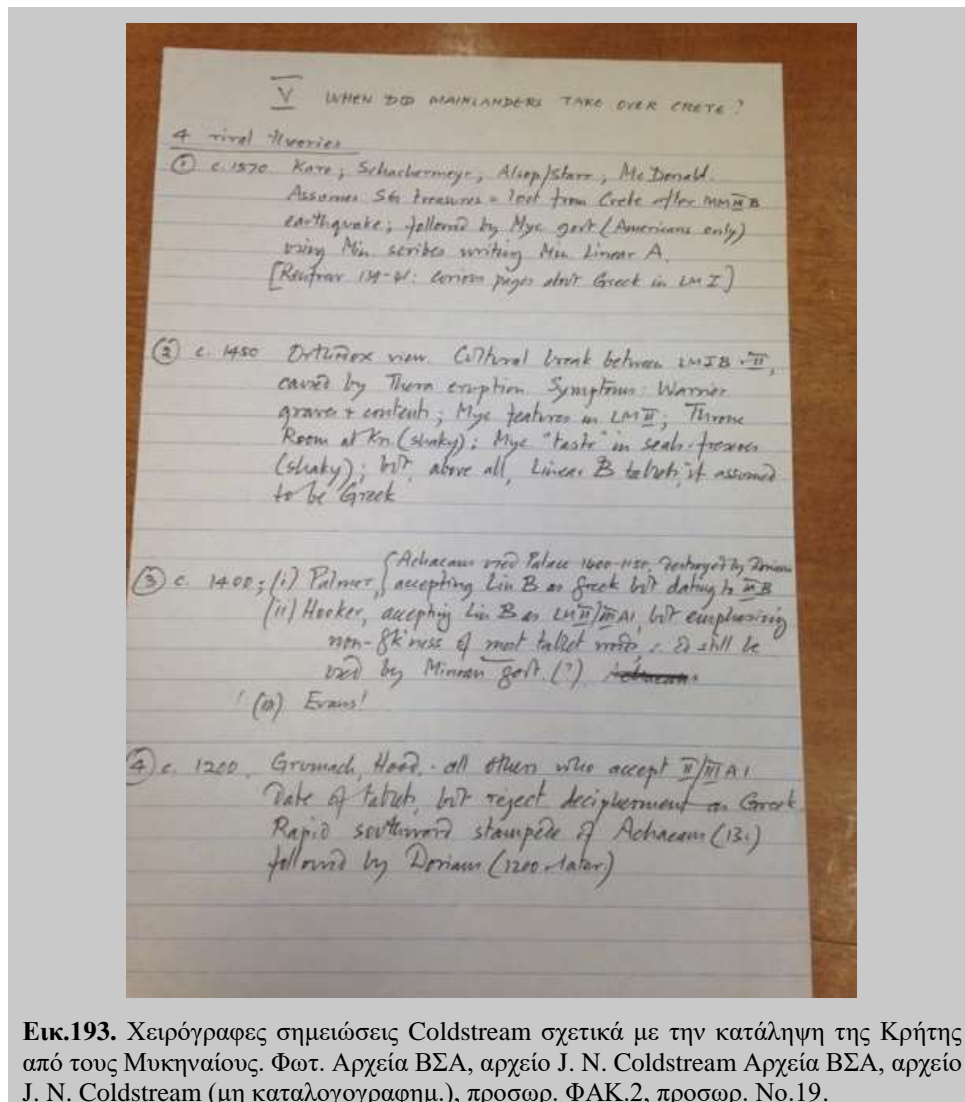 V WHEN DID MAINLANDERS TAKE OVER CRETE?
4 rival theories
① c. 1570 Karo, Schachermeyr, Alsop/Starr, McDonald.
Assumes SG treasures = loot from Crete after MM III B
earthquake; followed by Myc govt (Americans only)
using Min. scribes writing Min Linear A.
[Renfrew 139-41: curious pages about Greek in LM I]
② c. 1450 Orthodox view. Cultural break between LMIB - II,
caused by Thera eruption. Symptoms: Warrior
graves + contents; Myc features in LM II; Throne
Room at Kn. (shaky); Myc "taste" in seals - frescoes
(shaky); but, above all, Linear B tablets, if assumed
to be Greek
{Achaeans used Palace 1400-1150, destroyed by Dorians
③ c. 1400; (i) Palmer, accepting Lin B as Greek but dating to III B
(ii) Hooker, accepting Lin B as LM II/III A1, but emphasizing
non-Gk'ness of most tablet words ∴ could still be
used by Minoan govt. (?)
! (iii) Evans!
④ c. 1200. Grumach, Hood - all others who accept II/III A1
Date of tablets, but reject decipherment as Greek
Rapid southward stampede of Achaeans (13c)
followed by Dorians (1200 - later)
Εικ.193. Χειρόγραφες σημειώσεις Coldstream σχετικά με την κατάληψη της Κρήτης
από τους Μυκηναίους. Φωτ. Αρχεία ΒΣΑ, αρχείο J. N. Coldstream Αρχεία ΒΣΑ, αρχείο
J. N. Coldstream (μη καταλογογραφημ.), προσωρ. ΦΑΚ.2, προσωρ. No.19.